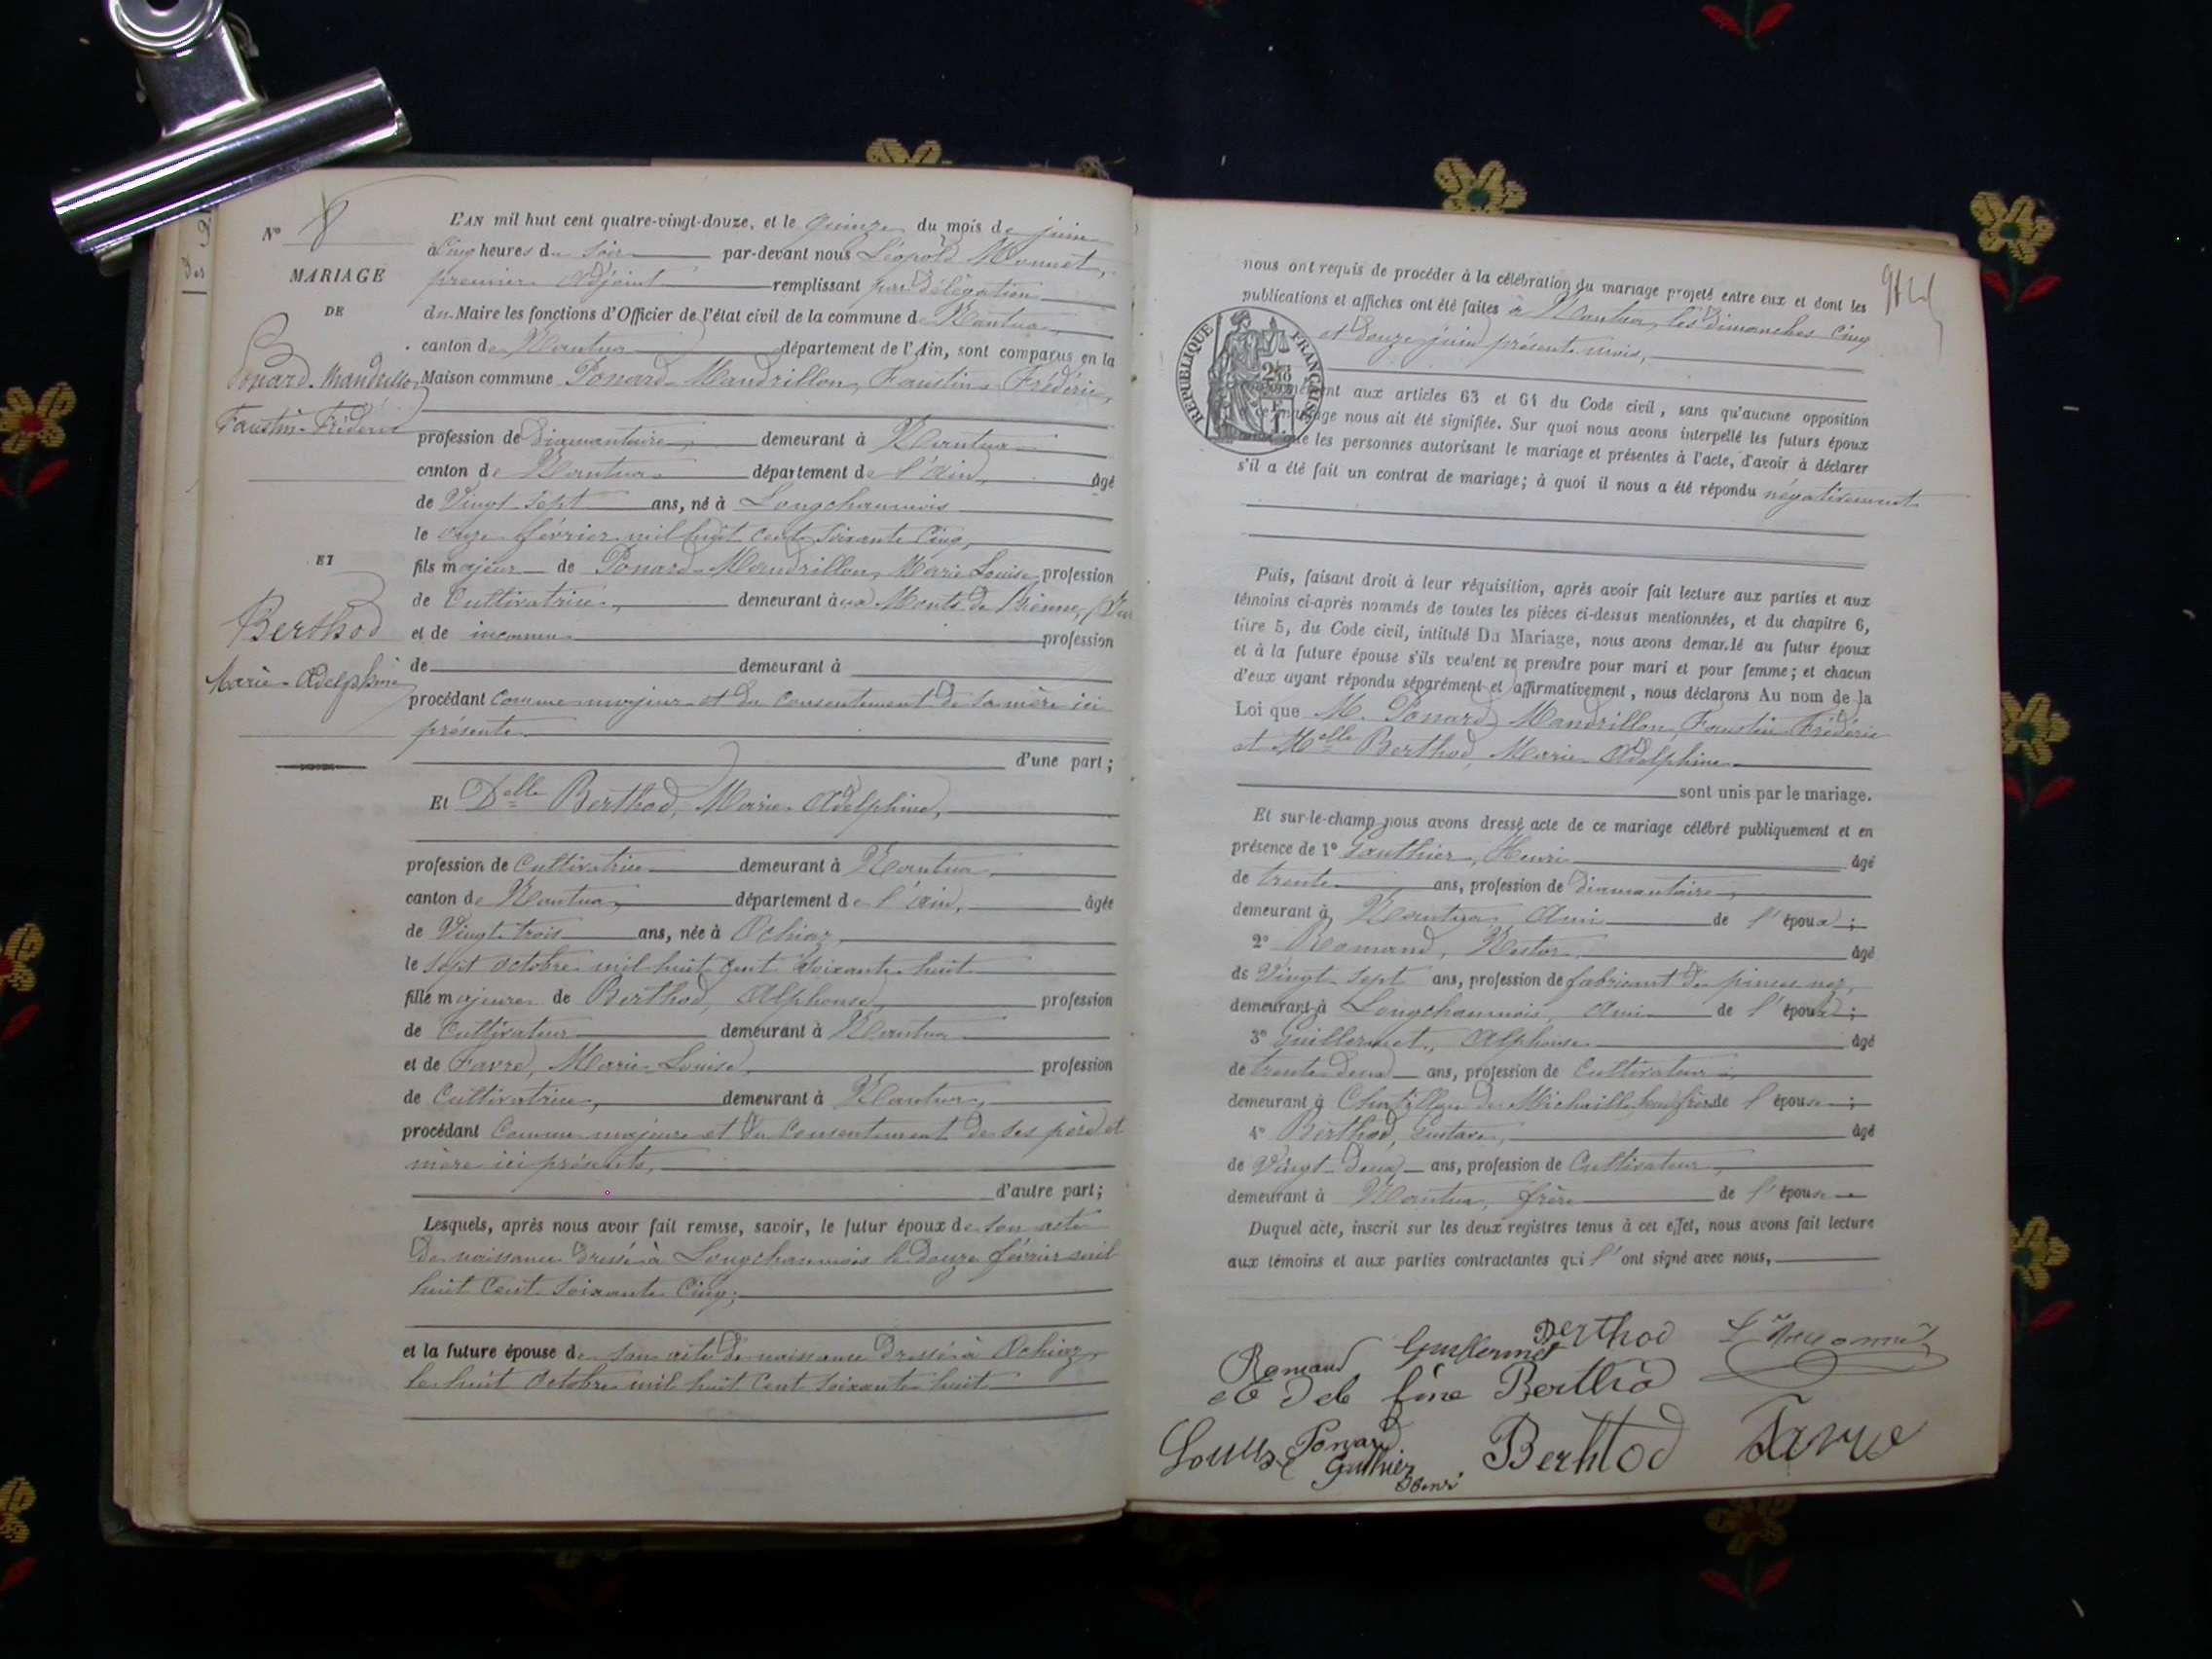 N° 8
MARIAGE
DE
Ponard-Mandrillon
Faustin-Frédéric
ET
Berthod
Marie-Adelphine
L'AN mil huit cent quatre-vingt-douze, et le quinze du mois de juin
à cinq heures du soir par-devant nous Léopold Monnet,
premier adjoint remplissant par délégation
du Maire les fonctions d'Officier de l'état civil de la commune de Nantua
canton de Nantua département de l'Ain, sont comparus en la
Maison commune Ponard-Mandrillon, Faustin-Frédéric,
profession de diamantaire, demeurant à Nantua
canton de Nantua département de l'Ain, âgé
de Vingt-sept ans, né à Longchaumois
le onze février mil huit cent soixante cinq,
fils majeur de Ponard-Mandrillon, Marie Louise, profession
de Cultivatrice, demeurant aux Monts de Bienne,
et de inconnu profession
de demeurant à
procédant comme majeur et du consentement de sa mère ici
présente
d'une part;
Et Delle Berthod, Marie-Adelphine,
profession de Cultivatrice demeurant à Nantua
canton de Nantua, département de l'Ain, âgée
de Vingt-trois ans, née à Ochiaz,
le sept octobre mil huit cent soixante huit
fille majeure de Berthod, Alphonse, profession
de Cultivateur demeurant à Nantua
et de Favre, Marie-Louise, profession
de Cultivatrice, demeurant à Nantua,
procédant comme majeure et du consentement de ses père et
mère ici présents,
d'autre part;
Lesquels, après nous avoir fait remise, savoir, le futur époux de son acte
de naissance dressé à Longchaumois le douze février mil
huit cent soixante cinq;
et la future épouse de son acte de naissance dressé à Ochiaz
le huit octobre mil huit cent soixante huit
nous ont requis de procéder à la célébration du mariage projeté entre eux et dont les
publications et affiches ont été faites à Nantua, les dimanches cinq
et douze juin présent mois,
RÉPUBLIQUE FRANÇAISE
aux articles 63 et 64 du Code civil, sans qu'aucune opposition
mariage nous ait été signifiée. Sur quoi nous avons interpellé les futurs époux
que les personnes autorisant le mariage et présentes à l'acte, d'avoir à déclarer
s'il a été fait un contrat de mariage; à quoi il nous a été répondu négativement
Puis, faisant droit à leur réquisition, après avoir fait lecture aux parties et aux
témoins ci-après nommés de toutes les pièces ci-dessus mentionnées, et du chapitre 6,
titre 5, du Code civil, intitulé Du Mariage, nous avons demandé au futur époux
et à la future épouse s'ils veulent se prendre pour mari et pour femme; et chacun
d'eux ayant répondu séparément et affirmativement, nous déclarons Au nom de la
Loi que M. Ponard-Mandrillon, Faustin Frédéric
et Melle Berthod, Marie-Adelphine
sont unis par le mariage.
Et sur-le-champ nous avons dressé acte de ce mariage célébré publiquement et en
présence de 1° Gauthier, Henri âgé
de trente ans, profession de diamantaire,
demeurant à Nantua, Ami de l'époux;
2° Romand, Nestor âgé
de Vingt-sept ans, profession de fabricant de pince-nez,
demeurant à Longchaumois, Ami de l'époux;
3° Guillermet, Alphonse âgé
de trente-deux ans, profession de Cultivateur,
demeurant à Châtillon de Michaille, beau-frère de l'épouse;
4° Berthod, Gustave, âgé
de Vingt-deux ans, profession de Cultivateur,
demeurant à Nantua, frère de l'épouse
Duquel acte, inscrit sur les deux registres tenus à cet effet, nous avons fait lecture
aux témoins et aux parties contractantes qui l'ont signé avec nous,
Romand Guillermet Berthod L. Monnet
Berthod
Louise Ponard Berthod Favre
Gauthier
Henri